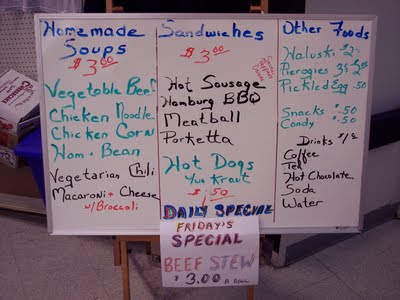 Homemade
Soups
$3.00
Vegetable Beef
Chicken Noodle
Chicken Corn
Ham + Bean
Vegetarian Chili
Macaroni + Cheese
w/Broccoli
Sandwiches
$3.00
Hot Sausage
Hamburg BBQ
Meatball
Porketta
Hot Dogs
w/
Kraut
$1.50
DAILY SPECIAL
FRIDAY'S
SPECIAL
BEEF STEW
$3.00 A BOWL
Other Foods
Haluski $2
Pierogies
Pickled Egg .50
Snacks .50
Candy .50
Drinks
Coffee
Tea
Hot Chocolate
Soda
Water